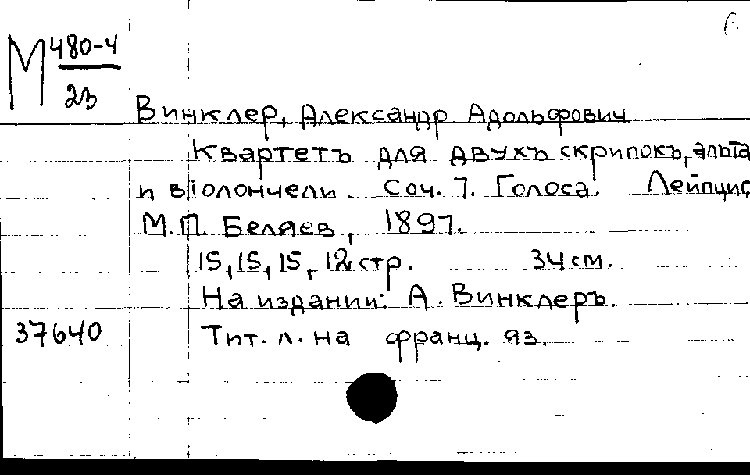 М 480-4
23
Винклер, Александр Адольфович
Квартетъ для двухъ скрипокъ, альта
и вiолончели. Соч. 7. Голоса. Лейпциг
М.П. Беляев, 1897.
15, 15, 15, 12 стр. 34 см.
На издании: А. Винклеръ.
37640 Тит. л. на франц. яз.